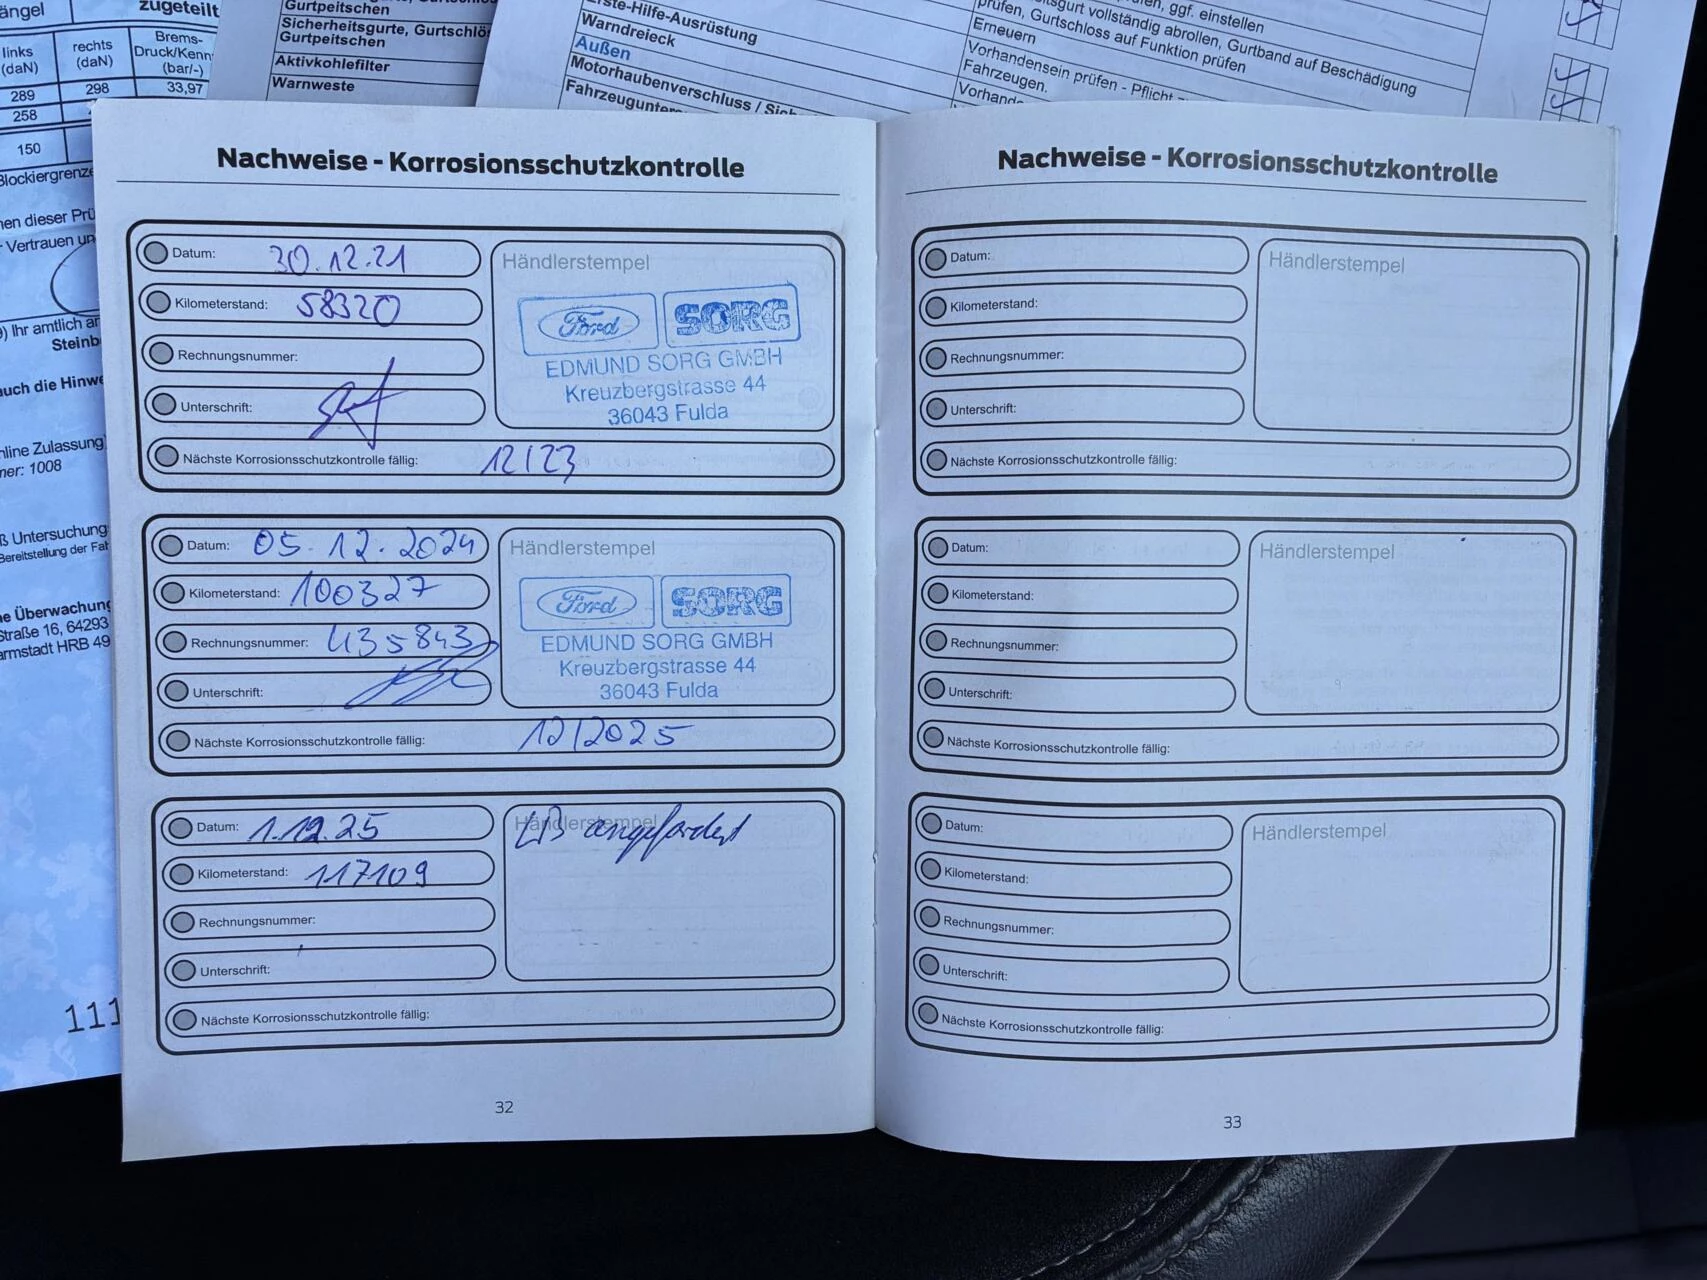 ängel
zugeteilt
links
(daN)
rechts
(daN)
Brems-
Druck/Kenn
(bar/-)
289
298
33,97
258
150
Blockiergrenze
nen dieser Prü
Vertrauen un
) Ihr amtlich an
Steinb
auch die Hinwe
nline Zulassung
ner: 1008
ß Untersuchung
Bereitstellung der Fat
ne Überwachung
straße 16, 64293
armstadt HRB 49
111
Gurtpeitschen
Sicherheitsgurte, Gurtschlö
Gurtpeitschen
Aktivkohlefilter
Warnweste
rste-Hilfe-Ausrüstung
Warndreieck
Außen
Motorhaubenverschluss / Sich
Fahrzeugunter
üfen, ggf. einstellen
itsgurt vollständig abrollen, Gurtband auf Beschädigung
prüfen, Gurtschloss auf Funktion prüfen
Erneuern
Vorhandensein prüfen - Pflicht
Fahrzeugen.
Vorhande
Nachweise - Korrosionsschutzkontrolle
Datum: 30.12.21
Kilometerstand: 58320
Rechnungsnummer:
Unterschrift:
Nächste Korrosionsschutzkontrolle fällig: 12/23
Händlerstempel
Ford SORG
EDMUND SORG GMBH
Kreuzbergstrasse 44
36043 Fulda
Datum: 05.12.2024
Kilometerstand: 100327
Rechnungsnummer: 435843
Unterschrift:
Nächste Korrosionsschutzkontrolle fällig: 12/2025
Händlerstempel
Ford SORG
EDMUND SORG GMBH
Kreuzbergstrasse 44
36043 Fulda
Datum: 1.12.25
Kilometerstand: 117109
Rechnungsnummer:
Unterschrift:
Nächste Korrosionsschutzkontrolle fällig:
Händlerstempel
angefordert
32
Nachweise - Korrosionsschutzkontrolle
Datum:
Kilometerstand:
Rechnungsnummer:
Unterschrift:
Nächste Korrosionsschutzkontrolle fällig:
Händlerstempel
Datum:
Kilometerstand:
Rechnungsnummer:
Unterschrift:
Nächste Korrosionsschutzkontrolle fällig:
Händlerstempel
Datum:
Kilometerstand:
Rechnungsnummer:
Unterschrift:
Nächste Korrosionsschutzkontrolle fällig:
Händlerstempel
33